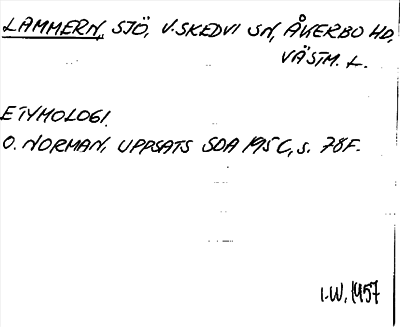 LAMMERN, SJÖ, V. SKEDVI SN, ÅKERBO HD,
VÄSTM. L.
ETYMOLOGI.
O. NORMAN, UPPSATS SDA 195C, S. 78F.
I.W. 1957